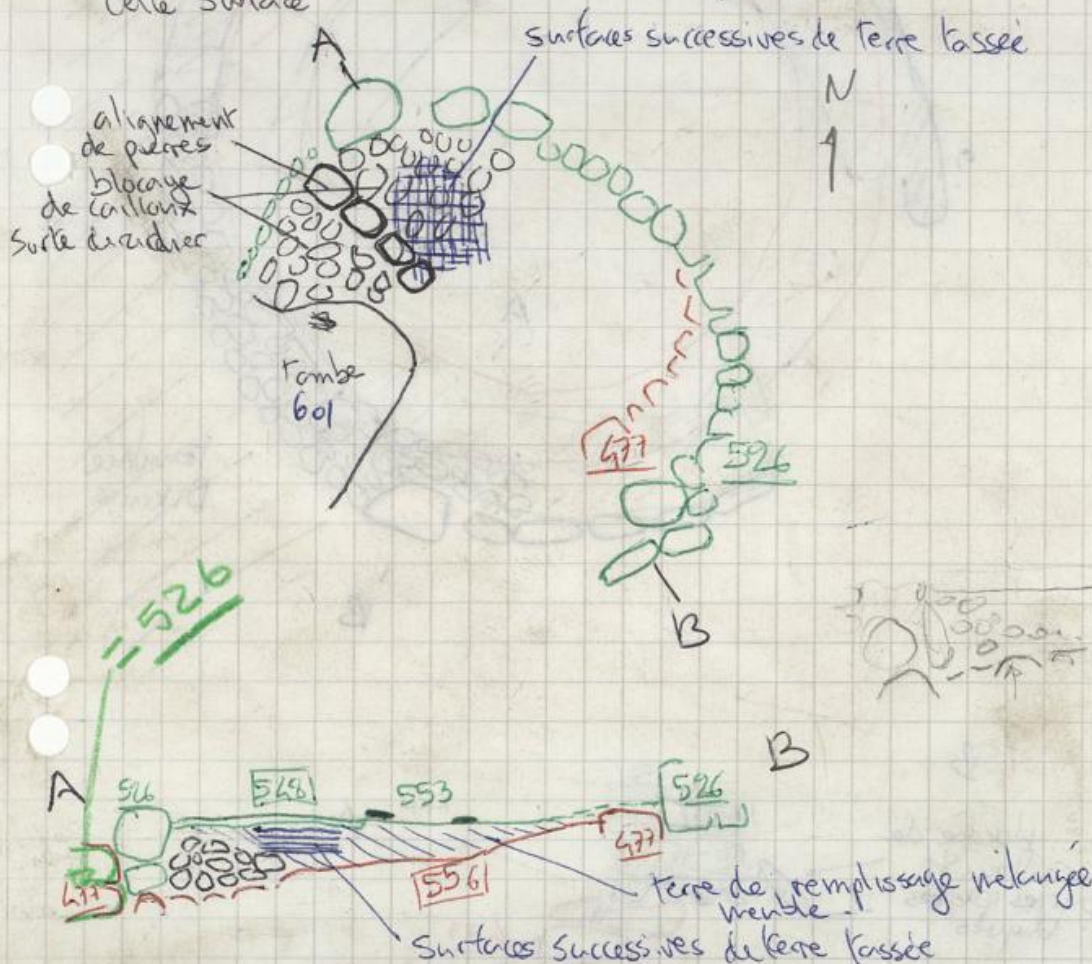 cette surface
surfaces successives de terre tassée
A
N
alignement
de pierres
blocage
de cailloux
sur le
tombe
601
477
526
B
= 526
A
B
526
528
553
526
477
477
556
terre de remplissage mélangée
meuble.
Surfaces successives de terre tassée